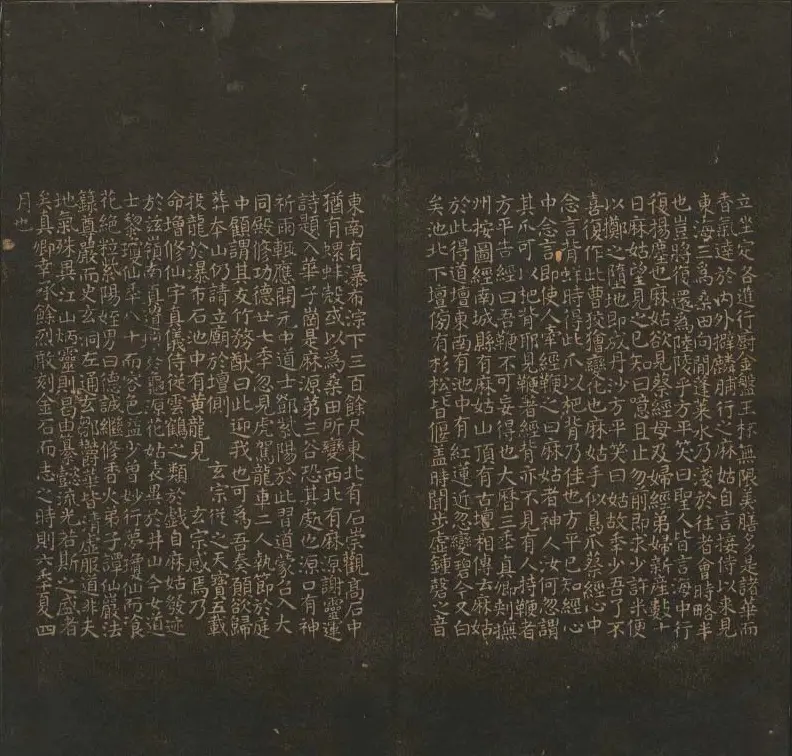 立坐定各進行廚金盤玉杯無限美膳多是諸華而
香氣達於內外擗麟脯行之麻姑自言接侍以來見
東海三為桑田向閒蓬萊水乃淺於往者會時略半
也豈將復還為陸陵乎方平笑曰聖人皆言海中行
復揚塵也麻姑欲見蔡經母及婦經弟婦新產數十
日麻姑望見之已知曰噫且止勿前即求少許米便
以擲之墮地即成丹沙方平笑曰姑故年少吾了不
喜復作此曹狡獪變化也麻姑手似鳥爪蔡經心中
念言背蛘時得此爪以杷背乃佳也方平已知經心
中念言即使人牽經鞭之曰麻姑者神人汝何忽謂
其爪可以杷背耶見鞭著經背亦不見有人持鞭者
方平告經曰吾鞭不可妄得也大曆三年真卿刺撫
州按圖經南城縣有麻姑山頂有古壇相傳云麻姑
於此得道壇東南有池中有紅蓮近忽變碧今又白
矣池北下壇傍有杉松皆偃蓋時聞步虛鍾磬之音
東南有瀑布淙下三百餘尺東北有石崇觀高石中
猶有螺蚌殼或以為桑田所變西北有麻源謝靈運
詩題入華子崗是麻源第三谷恐其處也源口有神
祈雨輒應開元中道士鄧紫陽於此習道蒙召入大
同殿修功德廿七年忽見虎駕龍車二人執節於庭
中顧謂其友竹務猷曰此迎我也可為吾奏願欲歸
葬本山仍請立廟於壇側 玄宗從之天寶五載
投龍於瀑布石池中有黃龍見 玄宗感焉乃
命增修仙宇真儀侍從雲鶴之類於戲自麻姑發迹
於茲嶺南真遺壇於龜源花姑表異於井山今女道
士黎瓊仙年八十而容色益少曾妙行夢瓊仙而飡
花絕粒紫陽姪男曰德誠繼修香火弟子譚仙巖法
籙尊嚴而史玄洞左通玄鄒鬱華皆清虛服道非夫
地氣殊異江山炳靈則曷由纂懿流光若斯之盛者
矣真卿幸承餘烈敢刻金石而志之時則六年夏四
月也